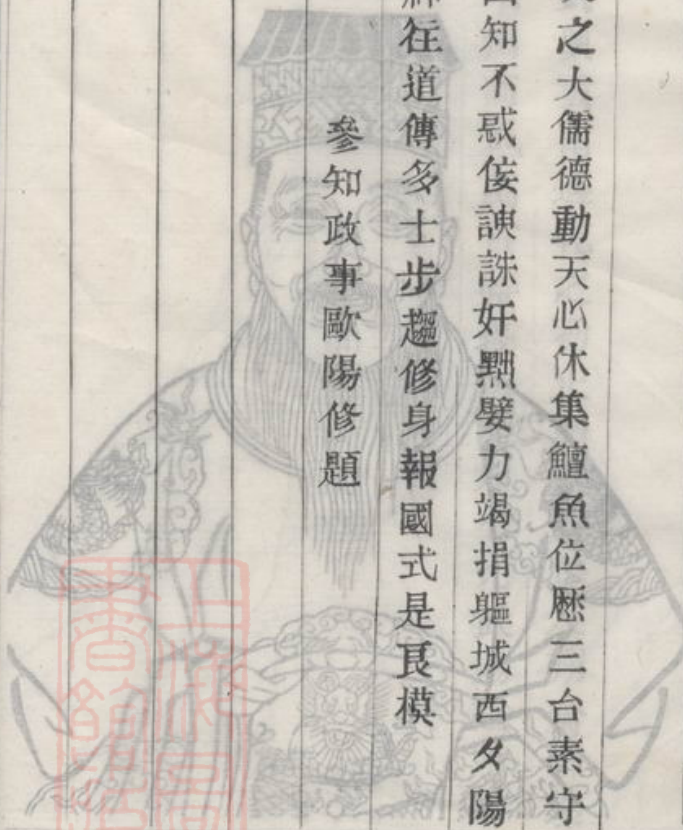 之大儒德動天心休集鱣魚位厯三台素守
四知不惑佞諛誅奸黜嬖力竭捐軀城西夕陽
神往道傳多士步趨修身報國式是良模
參知政事歐陽修題
上海圖
書館藏